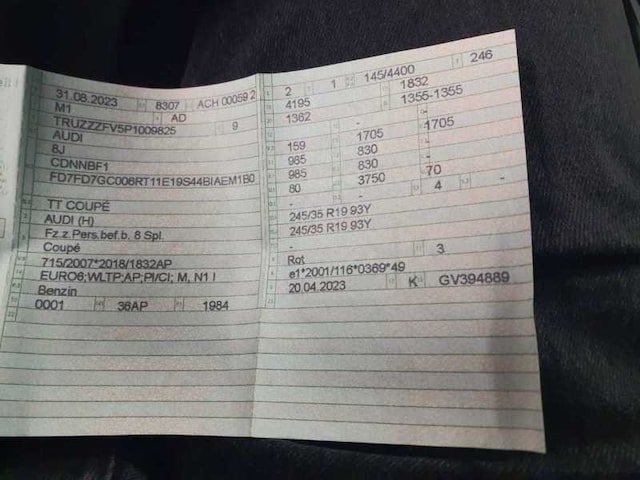 31.08.2023 8307 ACH 00059 2
M1 AD
TRUZZZFV5P1009825 9
AUDI
8J
CDNNBF1
FD7FD7GC006RT11E19S44BIAEM1B0
TT COUPÉ
AUDI (H)
Fz.z.Pers.bef.b. 8 Spl.
Coupé
715/2007*2018/1832AP
EURO6;WLTP;AP;PI/CI; M, N1 I
Benzin
0001 36AP 1984
2 1 145/4400 246
4195 1832
1362 1355-1355
- -
159 1705 1705
985 830 -
985 830 -
80 3750 70
- 4 -
245/35 R19 93Y
245/35 R19 93Y
-
Rot 3
e1*2001/116*0369*49
20.04.2023 K GV394889